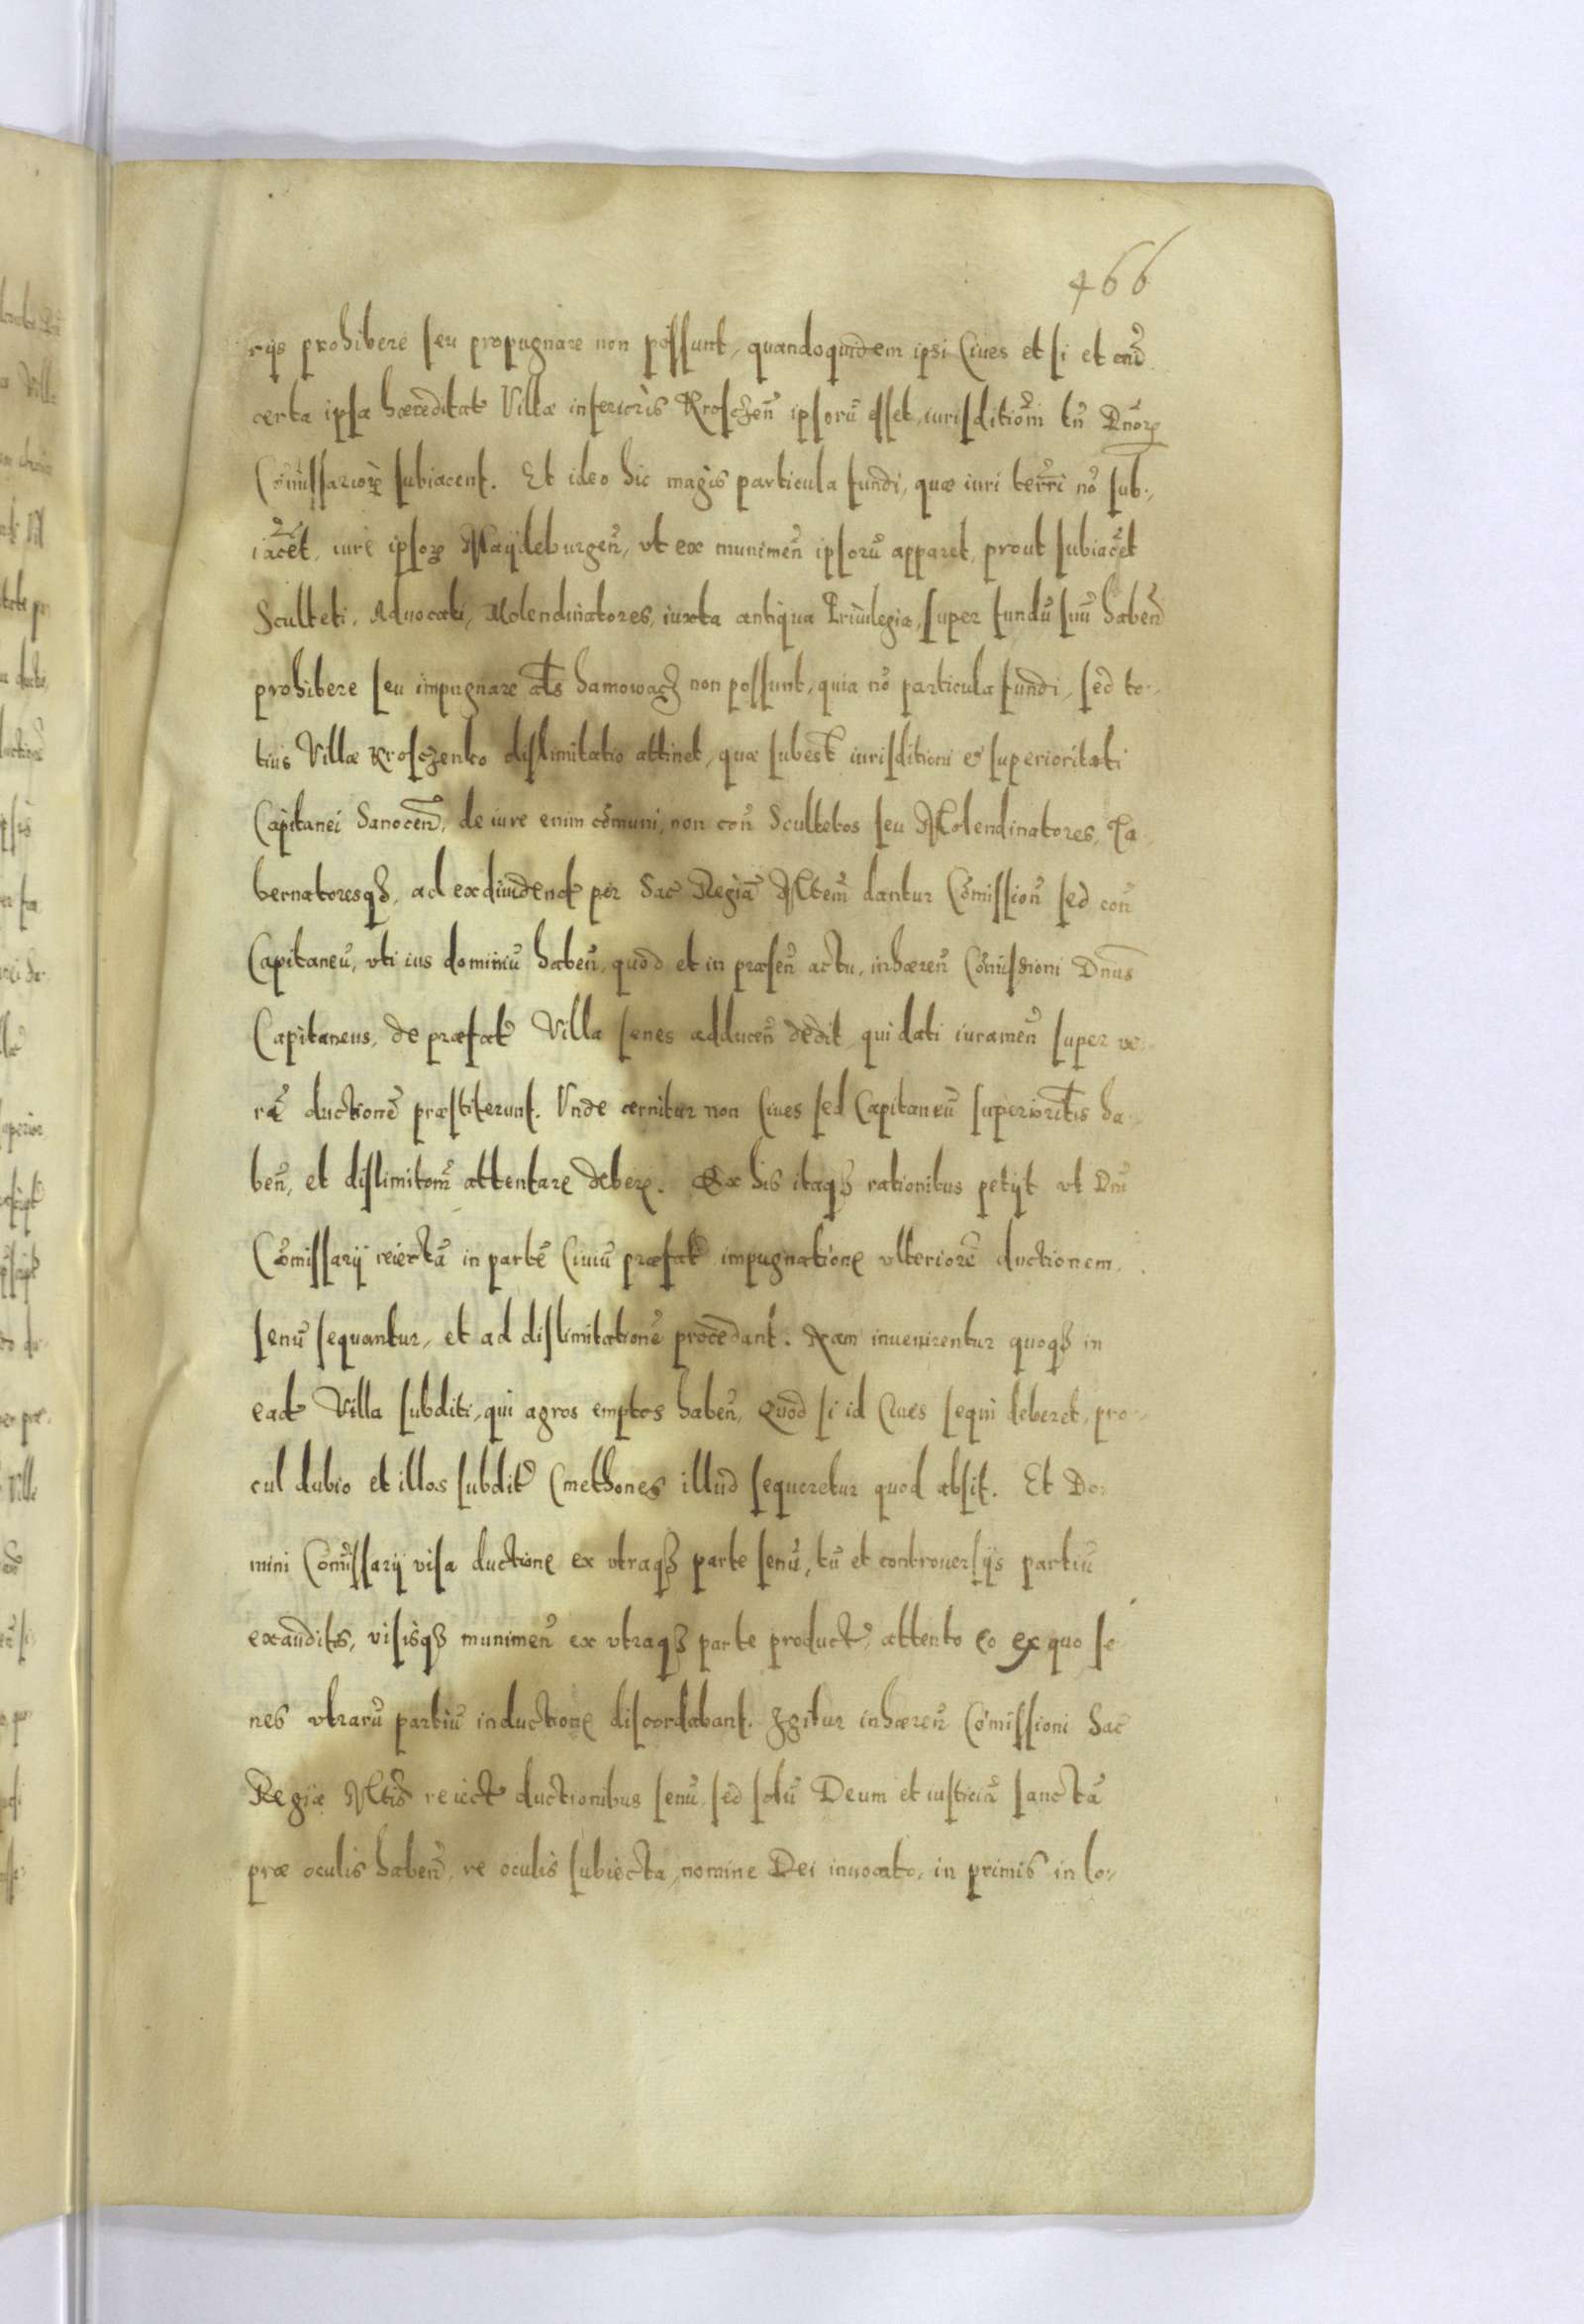 466
rijs prohibere seu propugnare non possunt, quandoquidem ipsi Ciues et si et cnũ
certa ipsa hæreditat Villæ inferioris Krosczeñ ipsorũ esset, iurisditiom̃ tñ Dnoꝝ
Com̃issarioꝝ subiacent. Et ideo hic magis particula fundi, quæ iuri terrı̃ nõ sub-
iacet, iure ipsoꝝ Maÿdeburgeñ, vt ex munimeñ ipsorũ apparet, prout subiacet
Sculteti, Aduocati, Molendinatores, iuxta antiqua Priuilegia, super fundũ suũ habeñ
prohibere seu impugnare als hamowacz non possunt, quia nõ particula fundi, sed to-
tius Villæ Krosczenko dislimitatio attinet, quæ subest iurisditioni et superioritati
Capitanei Sanoceñ, de iure enim cõmuni, non coñ Scultetos seu Molendinatores, Ta-
bernatoresqȝ, ad exdiuidend per Sac Regiã Mtem̃ dantur Cõmissioñ sed coñ
Capitaneũ, vti ius dominiũ habeñ, quod et in præseñ actu, inhæreñ Cõmissioni Dnus
Capitaneus, de præfat Villa senes adduceñ dedit, qui dati iurameñ super ve-
rã ductionẽ præstiterunt. Vnde cernitur non Ciues sed Capitaneũ superioritis ha-
beñ, et dislimitom̃ attentare debere. Ex his itaqȝ rationibus petijt vt Dni
Cõmissarij reiectã in partẽ Ciuiũ præfat impugnatione vlteriorẽ ductionem
senũ sequantur, et ad dislimitationẽ procedant. Nam inuenirentur quoqȝ in
ead Villa subditi, qui agros emptos habeñ, Quod si id Ciues sequi deberet, pro-
cul dubio et illos subdit Cmethones illud sequeretur quod absit. Et Do-
mini Cõmissarij visa ductione ex vtraqȝ parte senũ, tũ et controuersijs partiũ
exauditis, visisqȝ munimeñ ex vtraqȝ parte product, attento eo ex quo se-
nes vtrarũ partiũ in ductione discordabant. Igitur inhæreñ Cõmissioni Sac
Regiæ Mtis reiect ductionibus senũ, sed solũ Deum et iusticiã sanctã
præ oculis habeñ, re oculis subiecta, nomine Dei inuocato, in primis in lo-